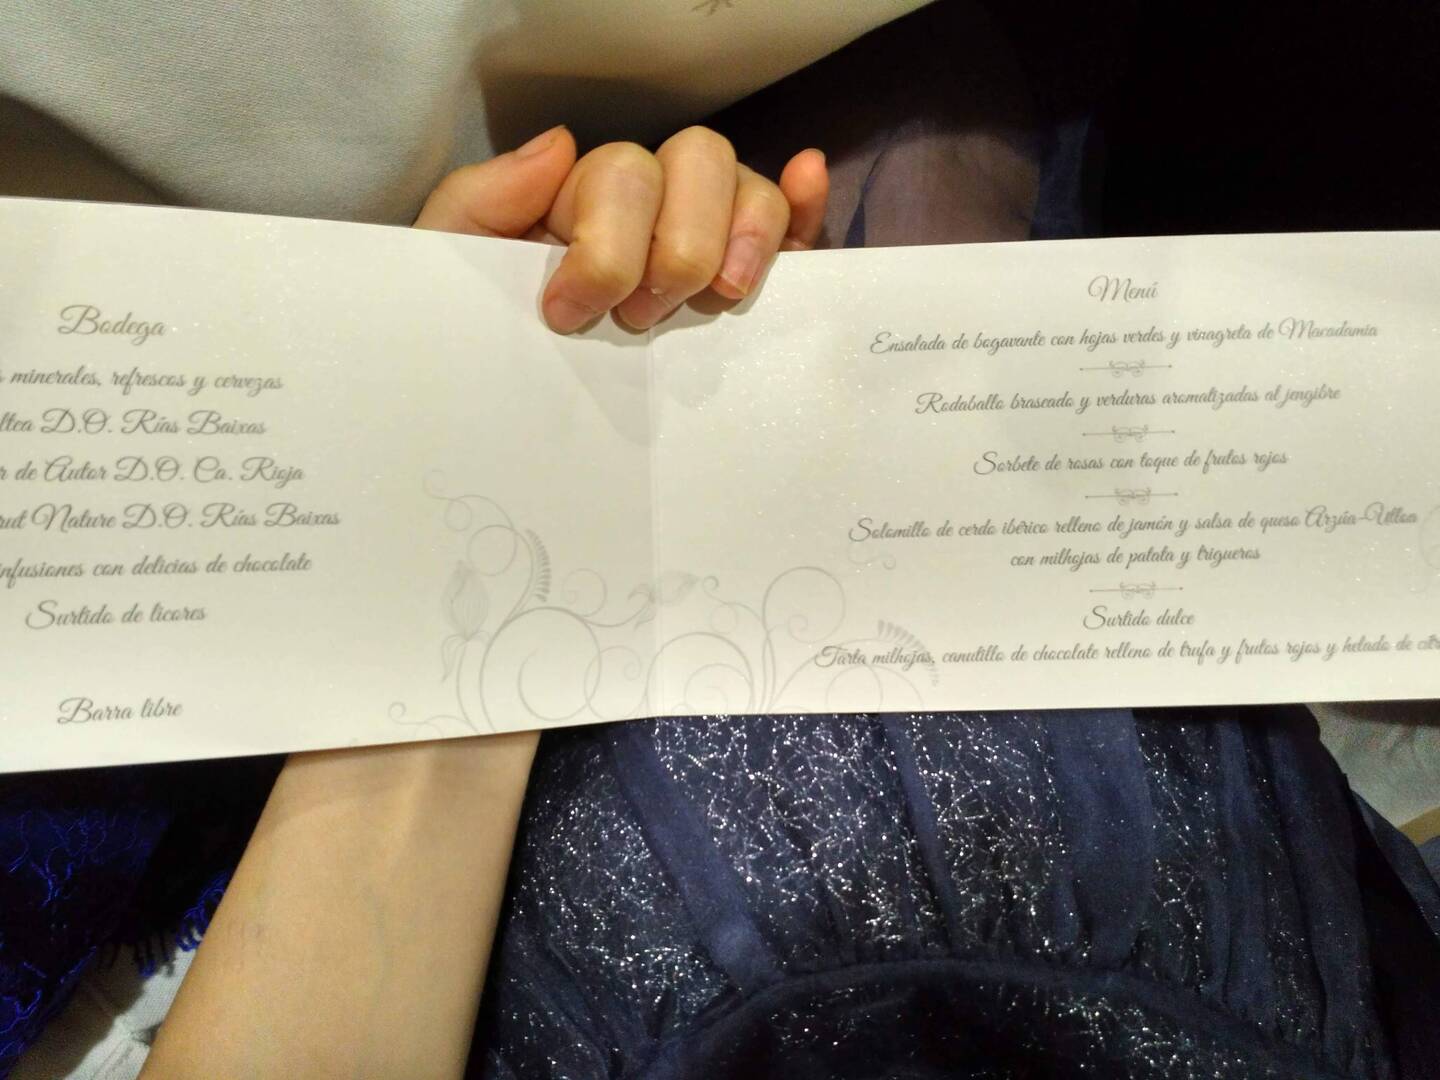 Bodega
minerales, refrescos y cervezas
D.O. Rías Baixas
de Autor D.O. Ca. Rioja
Nature D.O. Rías Baixas
infusiones con delicias de chocolate
Surtido de licores
Barra libre
Menú
Ensalada de bogavante con hojas verdes y vinagreta de Macadamia
Rodaballo braseado y verduras aromatizadas al jengibre
Sorbete de rosas con toque de frutos rojos
Solomillo de cerdo ibérico relleno de jamón y salsa de queso Arzúa-Ulloa
con milhojas de patata y trigueros
Surtido dulce
Tarta milhojas, canutillo de chocolate relleno de trufa y frutos rojos y helado de